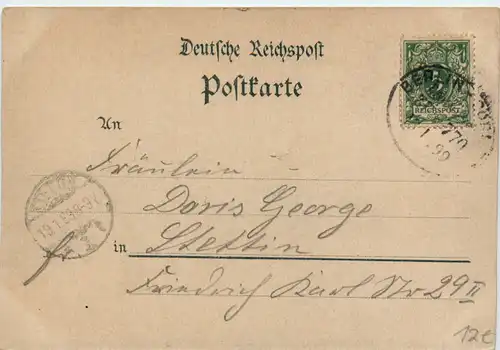 Deutsche Reichspost
Postkarte
REICHSPOST
BERLIN
1 99
An
Fräulein
Doris George
in Stettin
Friedrich Karl Str 29 II
fr.
12€